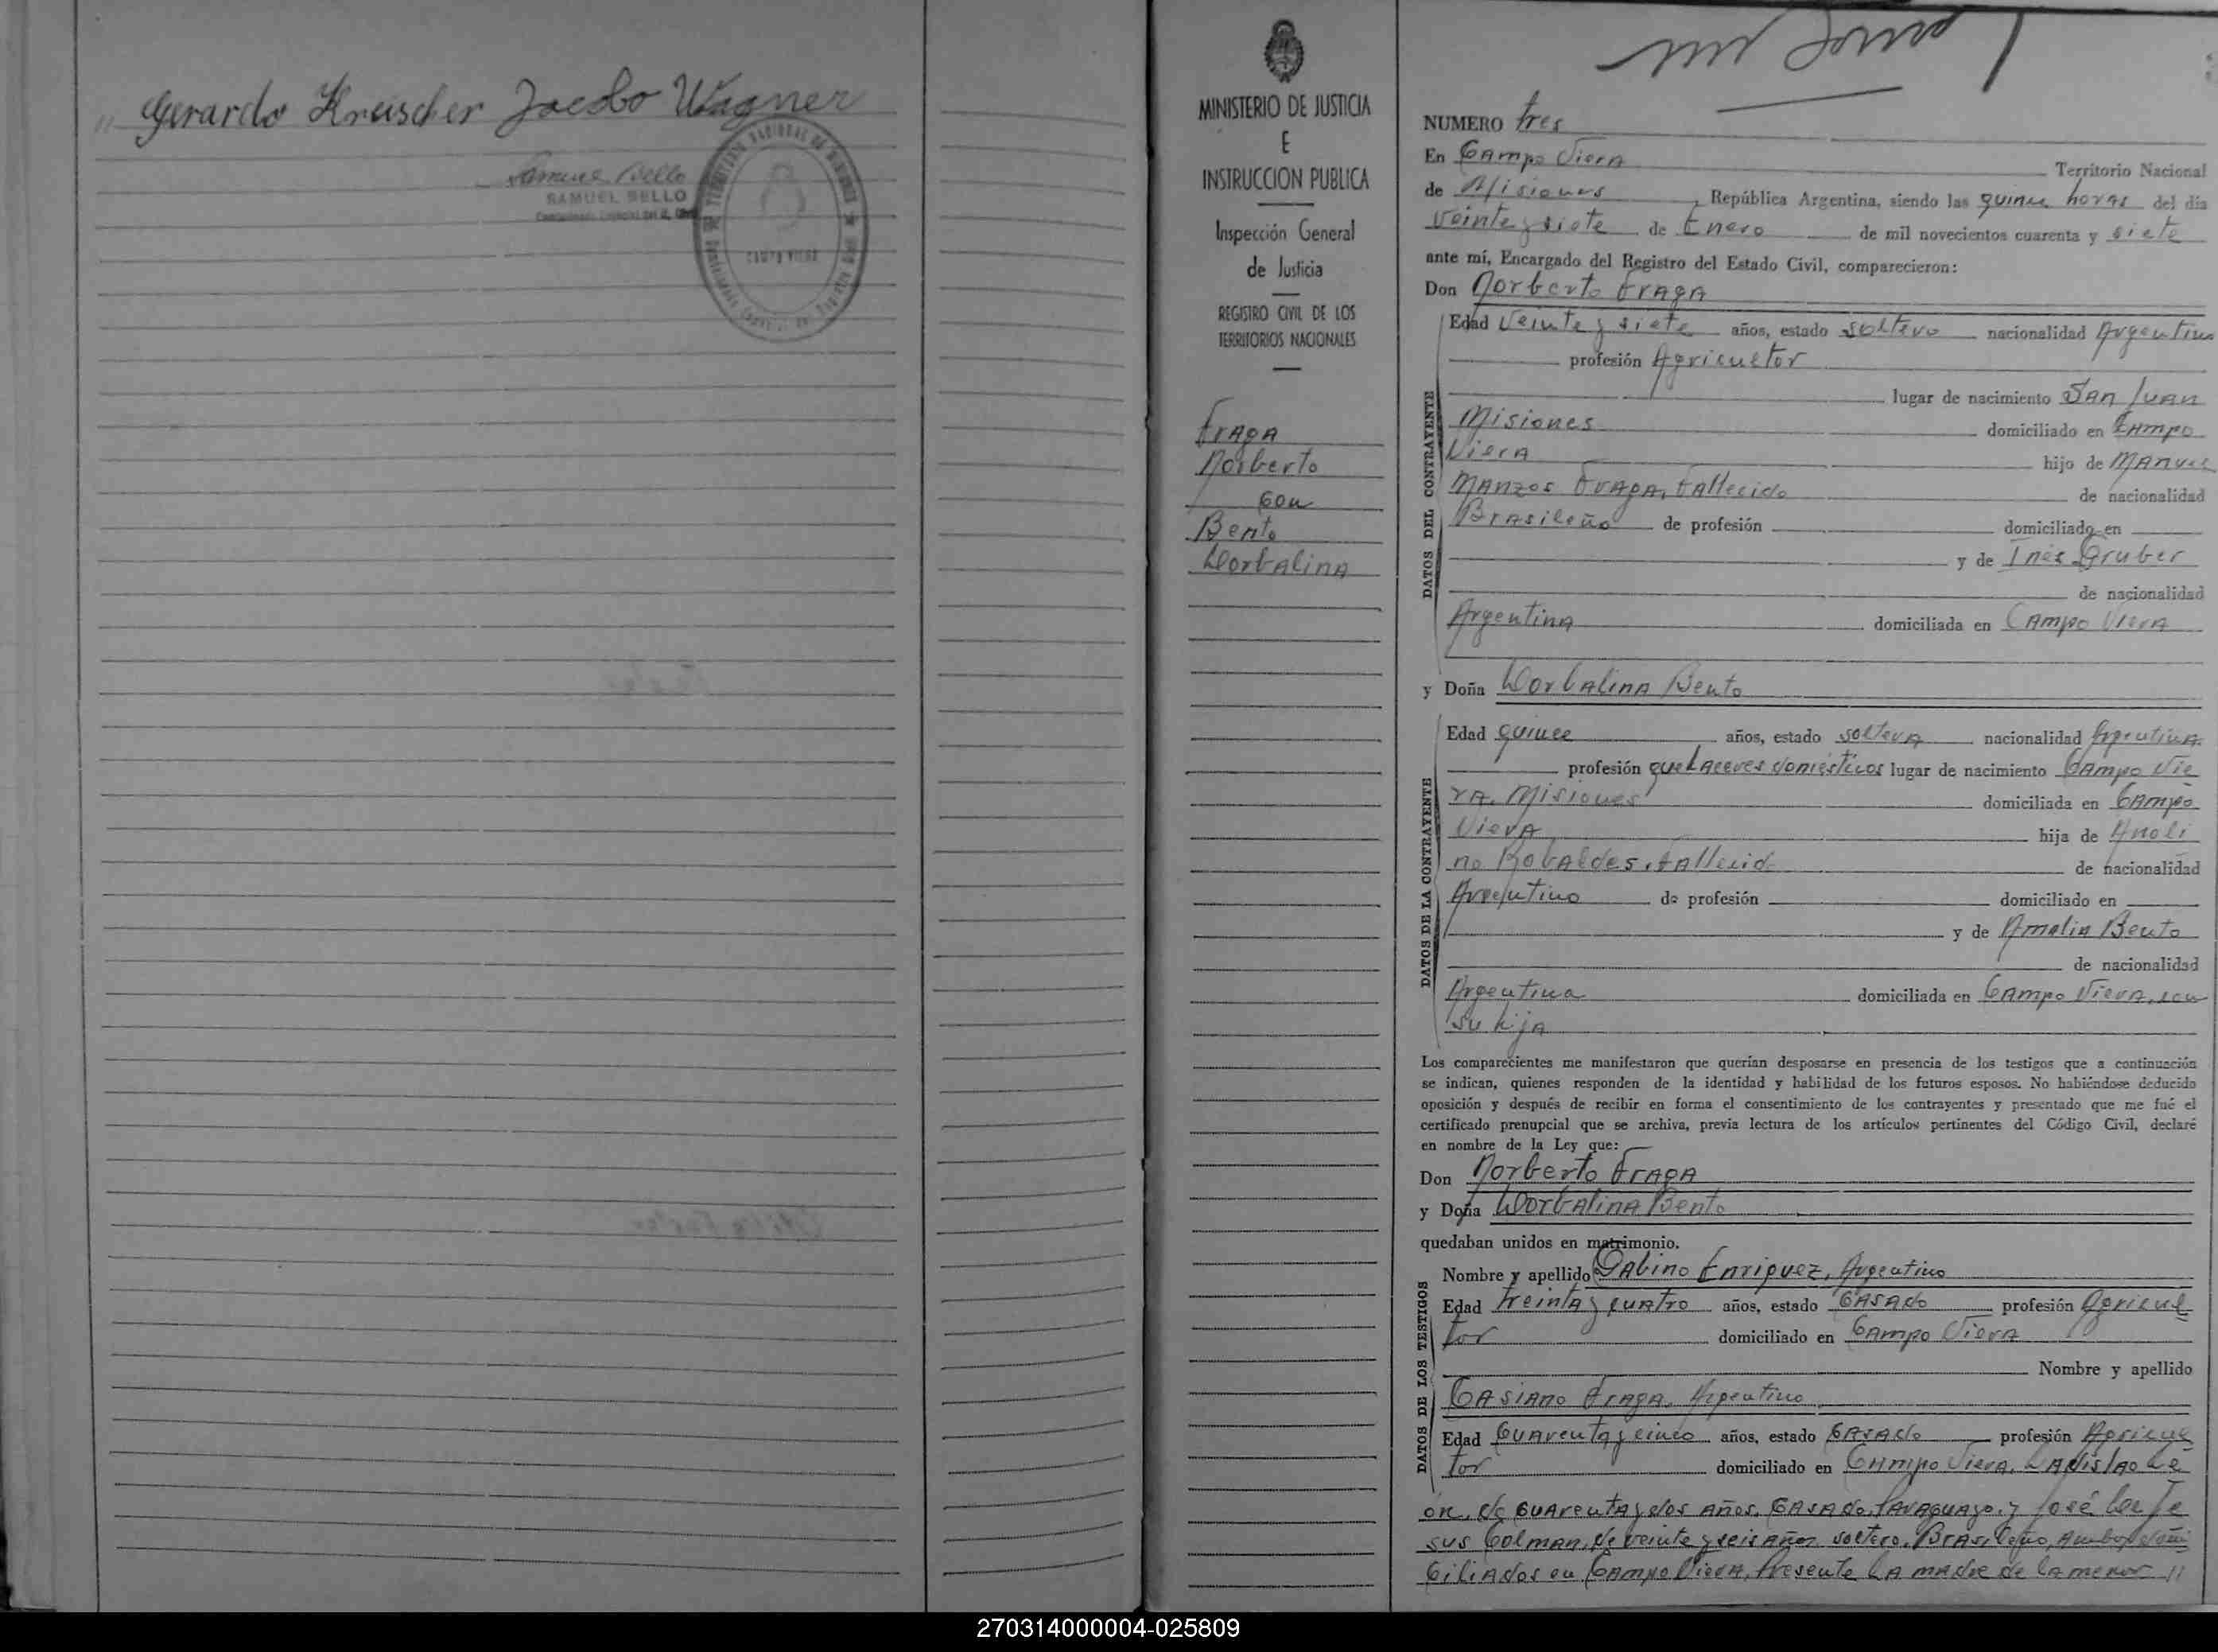 " Gerardo Kreischer Jacobo Wagner
Samuel Bello
SAMUEL BELLO
CAMPO VIERA
MINISTERIO DE JUSTICIA
E
INSTRUCCION PUBLICA
Inspección General
de Justicia
REGISTRO CIVIL DE LOS
TERRITORIOS NACIONALES
Fraga
Norberto
con
Bento
Dorbalina
NUMERO tres
En Campo Viera Territorio Nacional
de Misiones, República Argentina, siendo las quince horas del día
veinte y siete de Enero de mil novecientos cuarenta y siete
ante mí, Encargado del Registro del Estado Civil, comparecieron:
Don Norberto Fraga
DATOS DEL CONTRAYENTE
Edad veinte y siete años, estado soltero nacionalidad Argentino
profesión Agricultor
lugar de nacimiento San Juan
Misiones domiciliado en Campo
Viera hijo de Manuel
Manzos Fraga, fallecido de nacionalidad
Brasileño de profesión domiciliado en
y de Inés Gruber
de nacionalidad
Argentina domiciliada en Campo Viera
y Doña Dorbalina Bento
DATOS DE LA CONTRAYENTE
Edad quince años, estado soltera nacionalidad Argentina
profesión quehaceres domésticos lugar de nacimiento Campo Vie
ra, Misiones domiciliada en Campo
Viera hija de
no Robaldes, fallecido de nacionalidad
Argentino de profesión domiciliado en
y de Amalia Bento
de nacionalidad
Argentina domiciliada en Campo Viera, con
su hija
Los comparecientes me manifestaron que querían desposarse en presencia de los testigos que a continuación
se indican, quienes responden de la identidad y habilidad de los futuros esposos. No habiéndose deducido
oposición y después de recibir en forma el consentimiento de los contrayentes y presentado que me fué el
certificado prenupcial que se archiva, previa lectura de los artículos pertinentes del Código Civil, declaré
en nombre de la Ley que:
Don Norberto Fraga
y Doña Dorbalina Bento
quedaban unidos en matrimonio.
DATOS DE LOS TESTIGOS
Nombre y apellido Gabino Enriquez, Argentino
Edad treinta y cuatro años, estado casado profesión Agricul
tor domiciliado en Campo Viera
Nombre y apellido
Casiano Fraga, Argentino
Edad cuarenta y cinco años, estado casado profesión Agricul
tor domiciliado en Campo Viera, Ladislao Le
ón, de cuarenta y dos años, casado, Paraguayo, y José de Je
sus Colman, de veinte y seis años soltero, Brasileño, Ambos domi
ciliados en Campo Viera, Presente la madre de la menor //
270314000004-025809